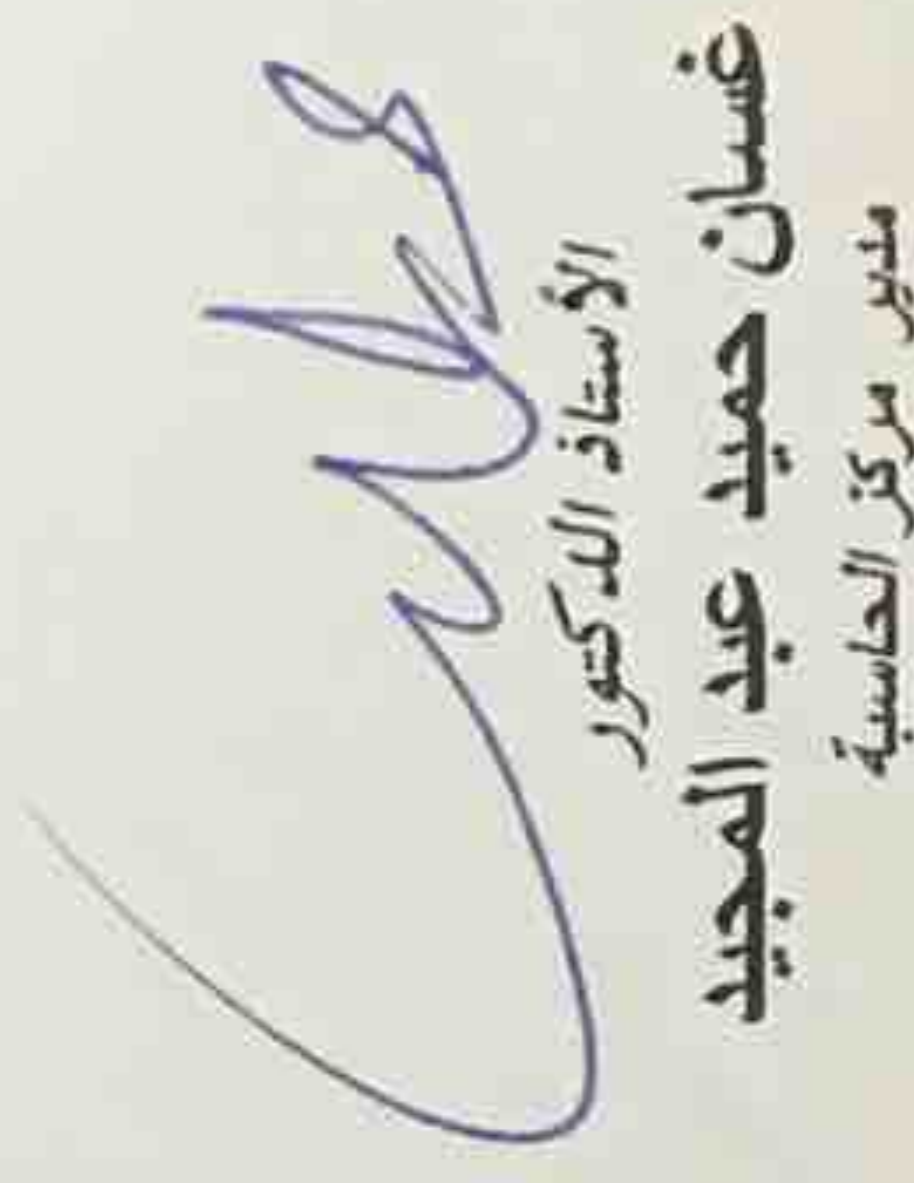 الأستاذ الدكتور
غسان حميد عبد المجيد
مدير مركز الحاسبة